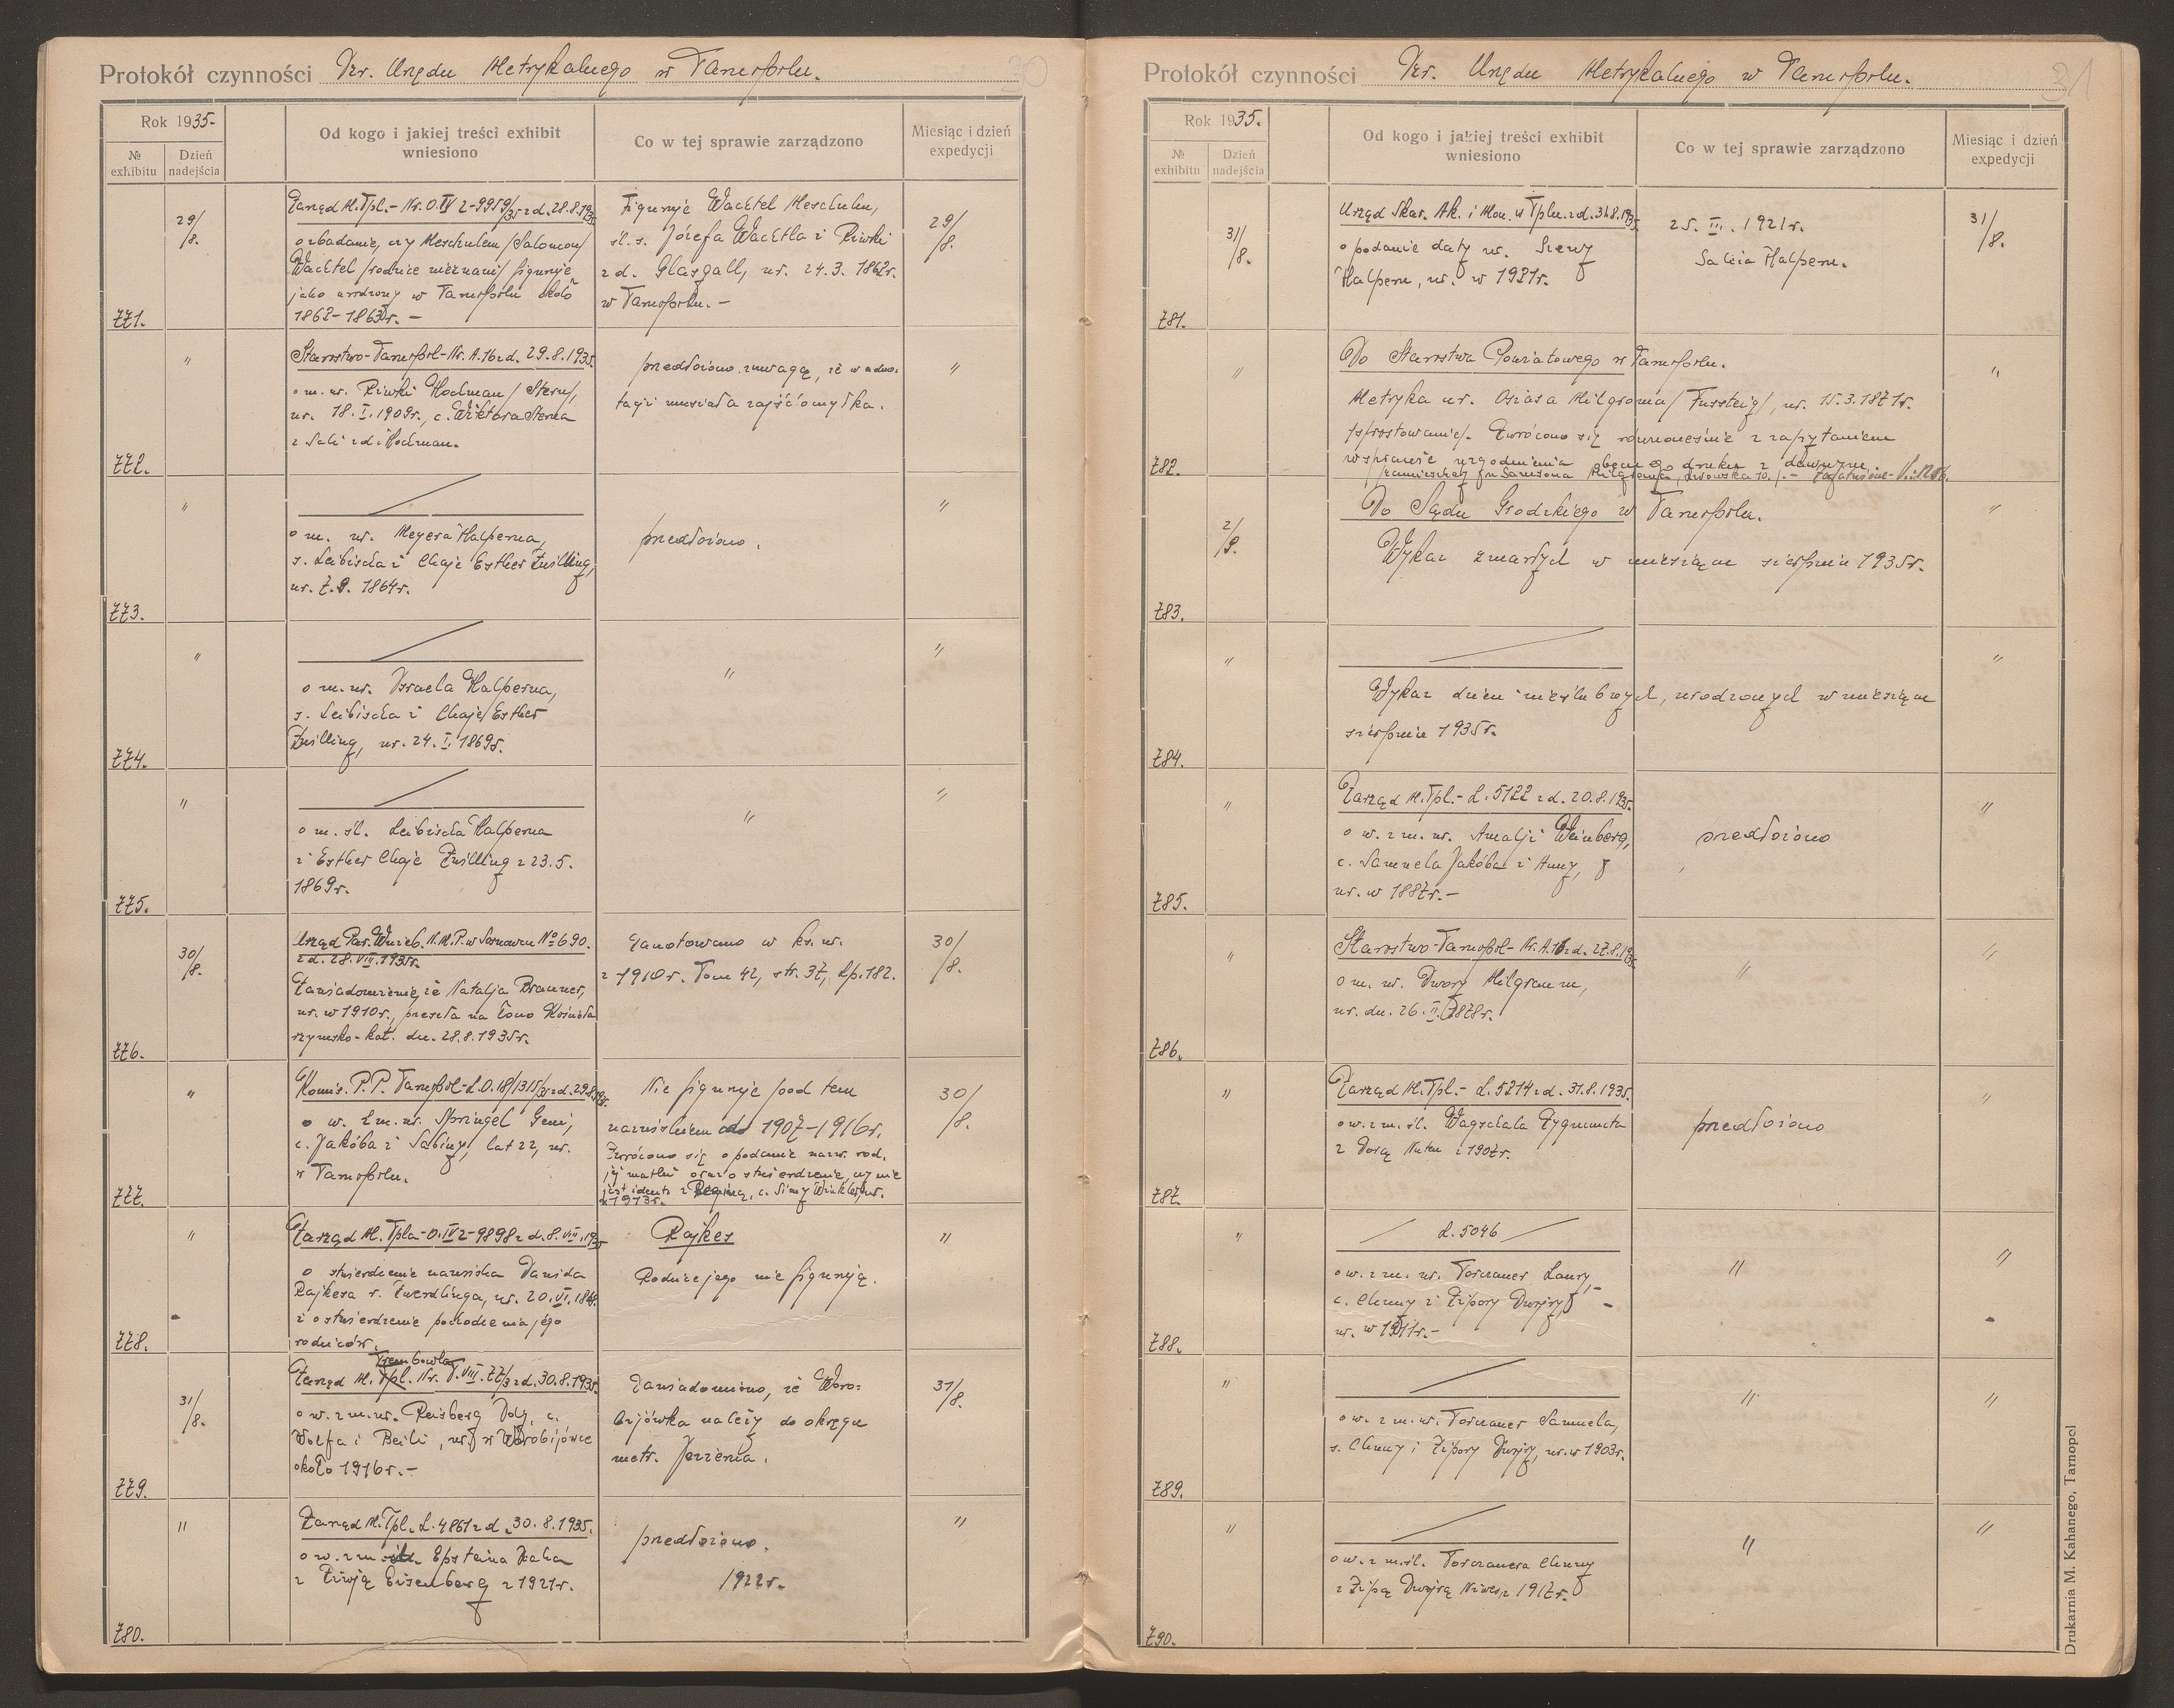 Protokół czynności Izr. Urzędu Metrykalnego w Tarnopolu.
30
Rok 1935.
№ exhibitu
Dzień nadejścia
Od kogo i jakiej treści exhibit wniesiono
Co w tej sprawie zarządzono
Miesiąc i dzień expedycji
771.
29/8.
Zarząd M. Tpl. - Nr. O.IV 2-9959/35 z d. 28.8.1935.
o zbadanie, czy Meschulem /Salomon/
Wachtel /rodzice nieznani/ figuruje
jako urodzony w Tarnopolu około
1862-1863r. -
Figuruje Wachtel Meschulem,
śl. s. Józefa Wachtla i Riwki
z d. Glasgall, ur. 24.3.1862r.
w Tarnopolu. -
29/8.
772.
"
Starostwo-Tarnopol-Nr. A.16 z d. 29.8.1935.
o m. ur. Riwki Hodman /Stern/,
ur. 18.I.1909r., c. Wiktora Sterna
i Sali z d. Hodman.
przedłożono z uwagą, że w adno-
tacji musiała zajść omyłka.
"
773.
"
o m. ur. Meyera Halperna,
s. Leibischa i Chaje Esther Zwilling,
ur. 7.9.1864r.
przedłożono.
"
774.
"
o m. ur. Israela Halperna,
s. Leibischa i Chaje Esther
Zwilling, ur. 24.I.1869r.
"
"
775.
"
o m. śl. Leibischa Halperna
i Esther Chaje Zwilling z 23.5.
1869r.
"
"
776.
30/8.
Urząd Par. Wnieb. N.M.P. w Sosnowcu № 690.
z d. 28.VIII.1935r.
Zawiadomienie, że Natalja Brauner,
ur. w 1910r., przeszła na łono Kościoła
rzymsko-kat. dn. 28.8.1935r.
Zanotowano w ks. ur.
z 1910r. Tom 42, str. 37, Lp. 182.
30/8.
777.
"
Komis. P.P. Tarnopol-L.O.18/1315/35 z d. 29.8.1935.
o w. z m. ur. Springel Geni,
c. Jakóba i Sabiny, lat 22, ur.
w Tarnopolu.
Nie figuruje pod tem
nazwiskiem od 1907-1916r.
Zwrócono się o podanie nazw. rod.
jej matki oraz o stwierdzenie, czy nie
jest ident. z Reginą, c. Simy Winkler, ur.
w 1913r.
30/8.
778.
"
Zarząd M. Tpla-O.IV 2-9898 z d. 8.VIII.1935
o stwierdzenie nazwiska Dawida
Rajkesa r. Zwerdlinga, ur. 20.VI.1868.
i o stwierdzenie pochodzenia jego
rodziców.
Rajkes
Rodzice jego nie figurują.
"
779.
31/8.
Trembowla
Zarząd M. Tpl. Nr. T.VIII.77/3 z d. 30.8.1935.
o w. z m. ur. Reisberg Doly, c.
Wolfa i Beili, ur. w Worobijówce
około 1916r. -
Zawiadomiono, że Woro-
bijówka należy do okręgu
metr. Jezierna.
31/8.
780.
"
Zarząd M. Tpl. L.4861 z d. 30.8.1935.
o w. z m. śl. Epsteina Izaka
z Ziwją Eisenberg z 1921r.
przedłożono.
1922r.
"
Protokół czynności Izr. Urzędu Metrykalnego w Tarnopolu.
31
Rok 1935.
№ exhibitu
Dzień nadejścia
Od kogo i jakiej treści exhibit wniesiono
Co w tej sprawie zarządzono
Miesiąc i dzień expedycji
781.
31/8.
Urząd Skar. Ak. i Mon. w Tplu. z d. 31.8.1935.
o podanie daty ur.
Halpern, ur. w 1921r.
25.III.1921r.
Salcia Halpern.
31/8.
782.
"
Do Starostwa Powiatowego w Tarnopolu.
Metryka ur. Osiasa Milgroma /Fussteig/, ur. 15.3.1871r.
/sprostowanie/. Zwrócono się równocześnie z zapytaniem
w sprawie uzgodnienia obecnego druku z dawnym.
/zamieszkały u Samsona Milgroma, Lwowska 10./ -
"
783.
2/9.
Do Sądu Grodzkiego w Tarnopolu.
Wykaz zmarłych w miesiącu sierpniu 1935r.
"
784.
"
Wykaz dzieci nieślubnych, urodzonych w miesiącu
sierpniu 1935r.
"
785.
"
Zarząd M. Tpl. - L.5122 z d. 20.8.1935.
o w. z m. ur. Amalji Weinberg,
c. Samuela Jakóba i Anny,
ur. w 1887r. -
przedłożono
"
786.
"
Starostwo-Tarnopol-Nr. A.16 z d. 27.8.1935.
o m. ur. Dwory Milgraum,
ur. dn. 26.II.1878r.
"
"
787.
"
Zarząd M. Tpl. - L.5214 z d. 31.8.1935.
o w. z m. śl. Wagschala Zygmunta
z Dorą z 1907r.
przedłożono
"
788.
"
L.5046
o w. z m. ur. Torczaner Laury, -
c. Chuny i Zipory Dwojry, -
ur. w 1911r. -
"
"
789.
"
o w. z m. ur. Torczaner Samuela,
s. Chuny i Zipory Dwojry, ur. w 1903r.
"
"
790.
"
o w. z m. śl. Torczanera Chuny
z Zipą Dwojrą z 1917r.
"
"
Drukarnia M. Kahanego, Tarnopol